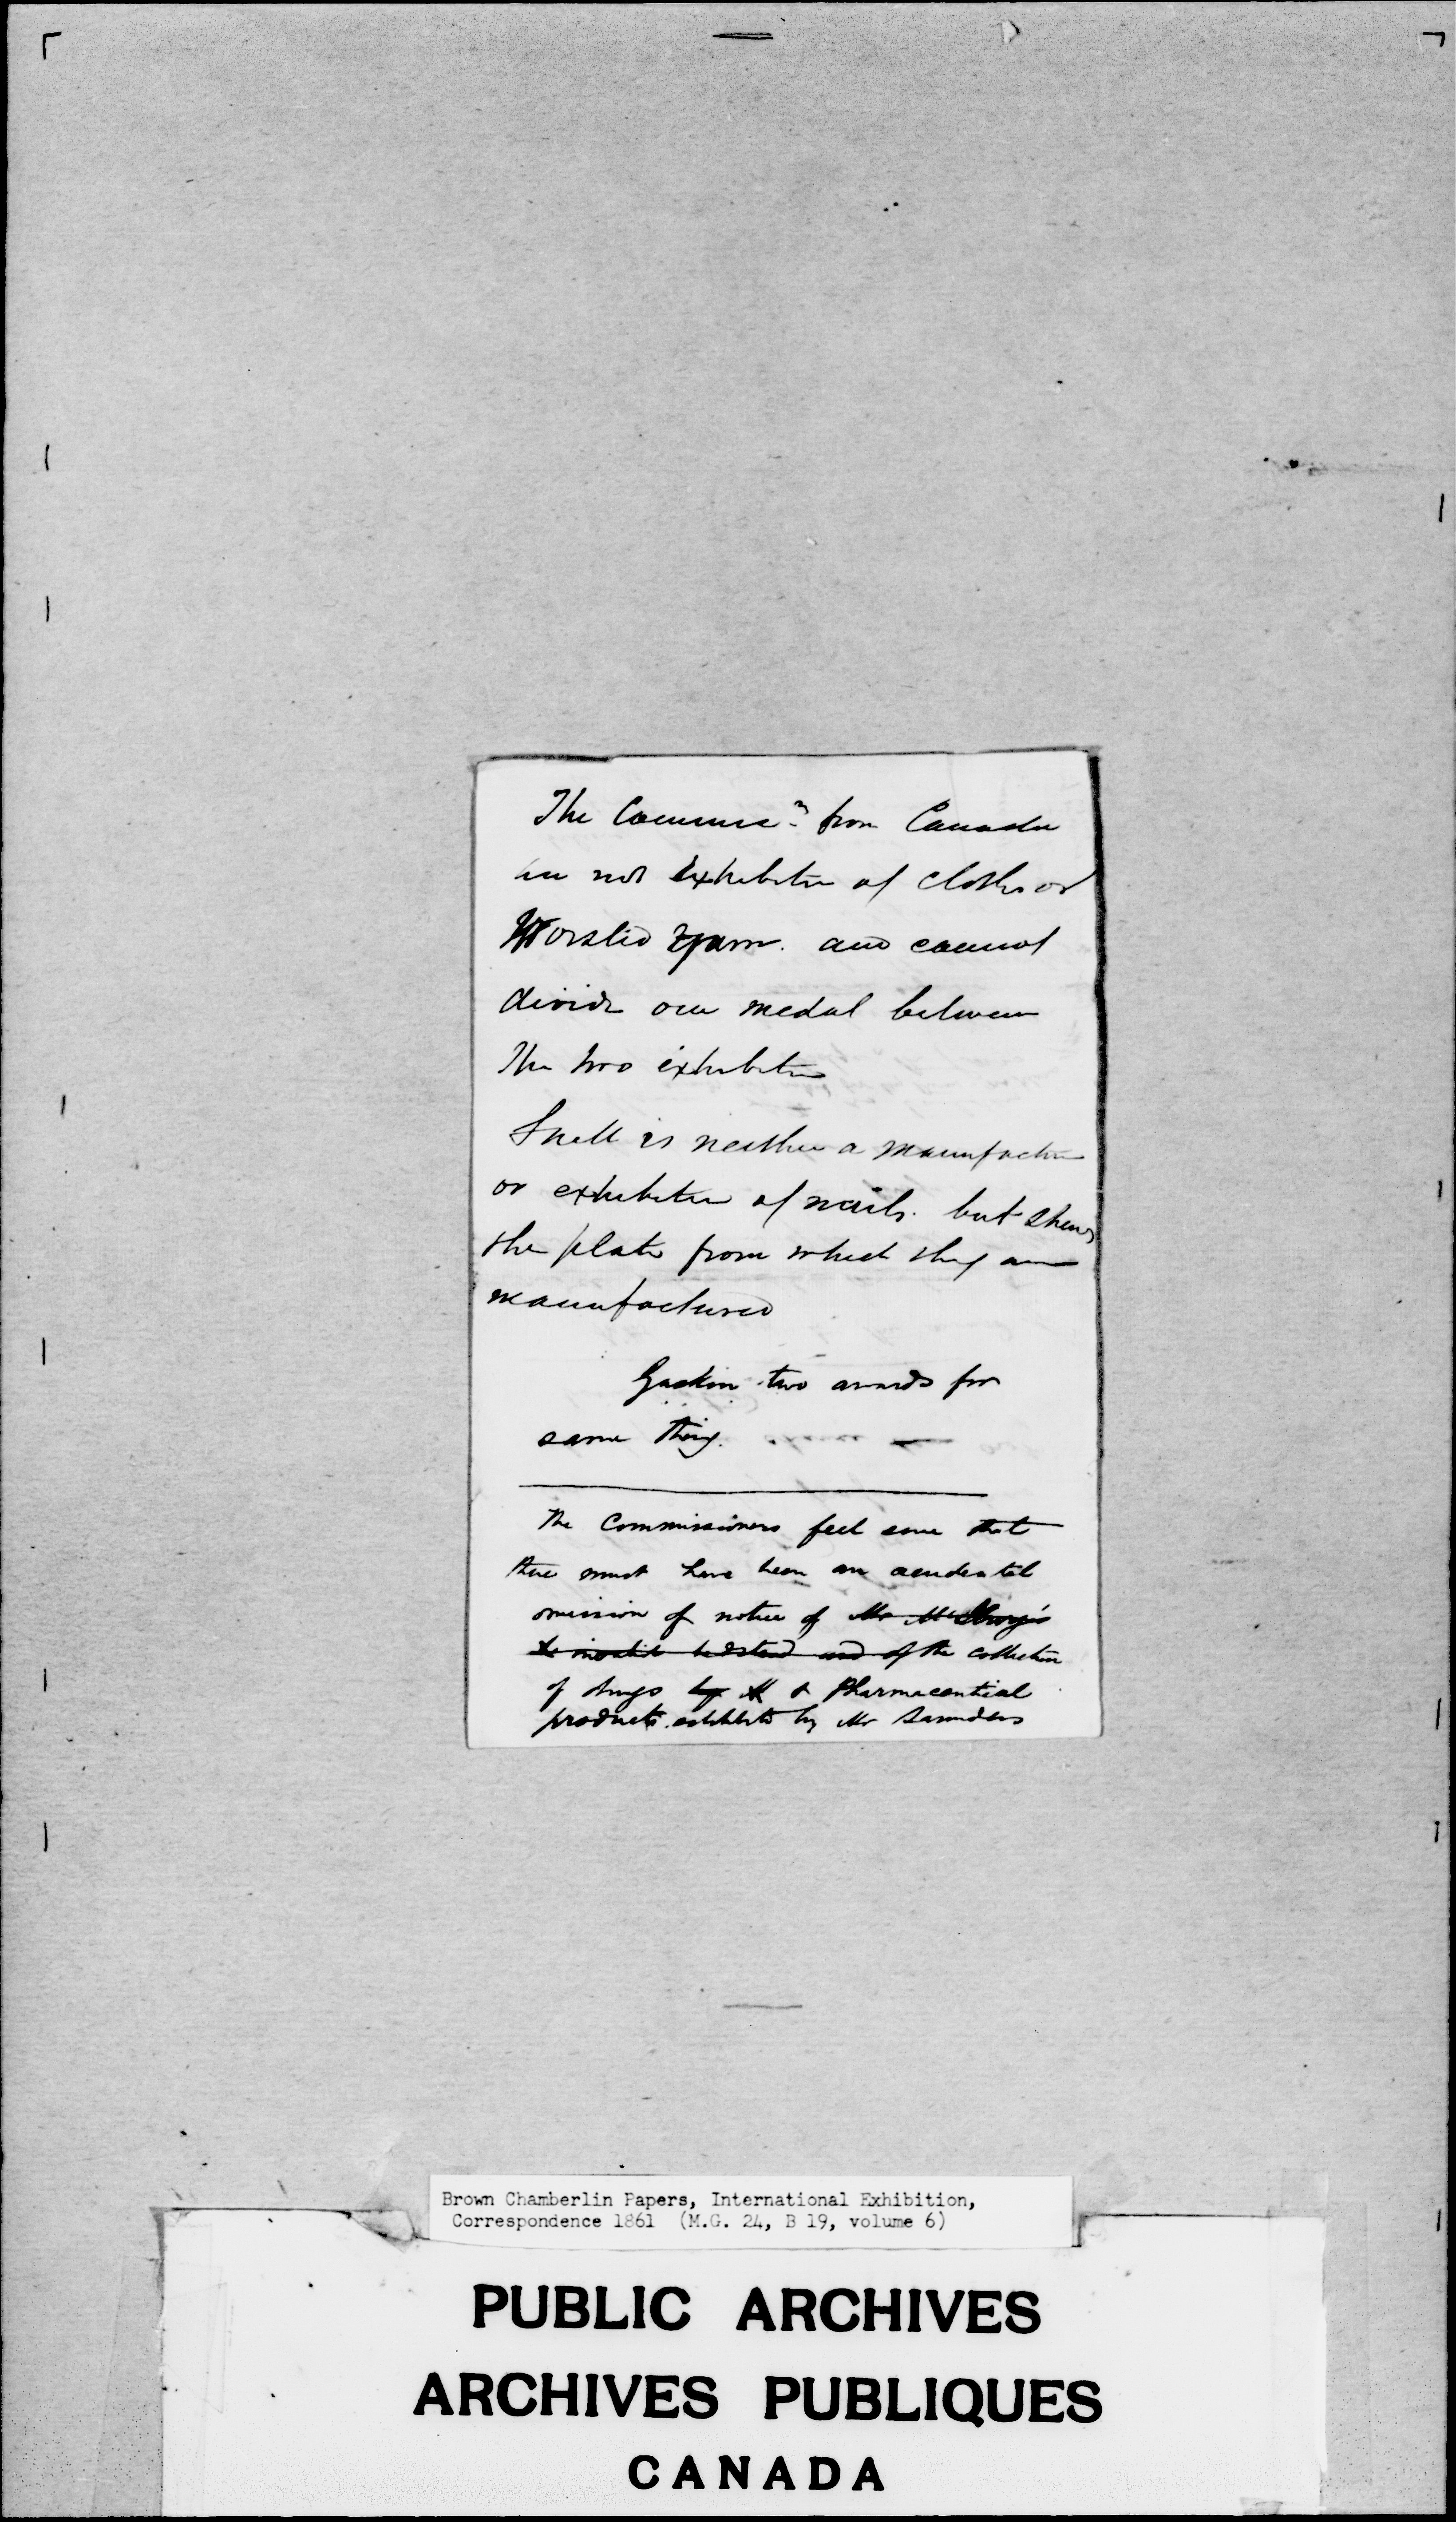 The Commrs from Canada
are not exhibitors of cloths or
Worsted Yarn. and cannot
divide one medal between
the two exhibitors
Snell is neither a manufacturer
or exhibitor of nails. but shews
the plate from which they are
manufactured
Gaskin two awards for
same thing.
The Commissioners feel sure that
there must have been an accidental
omission of notice of Mr
invalid bedstead and of the collection
of drugs by & Pharmaceutical
products exhibited by Mr Saunders
Brown Chamberlin Papers, International Exhibition,
Correspondence 1861 (M.G. 24, B 19, volume 6)
PUBLIC ARCHIVES
ARCHIVES PUBLIQUES
CANADA